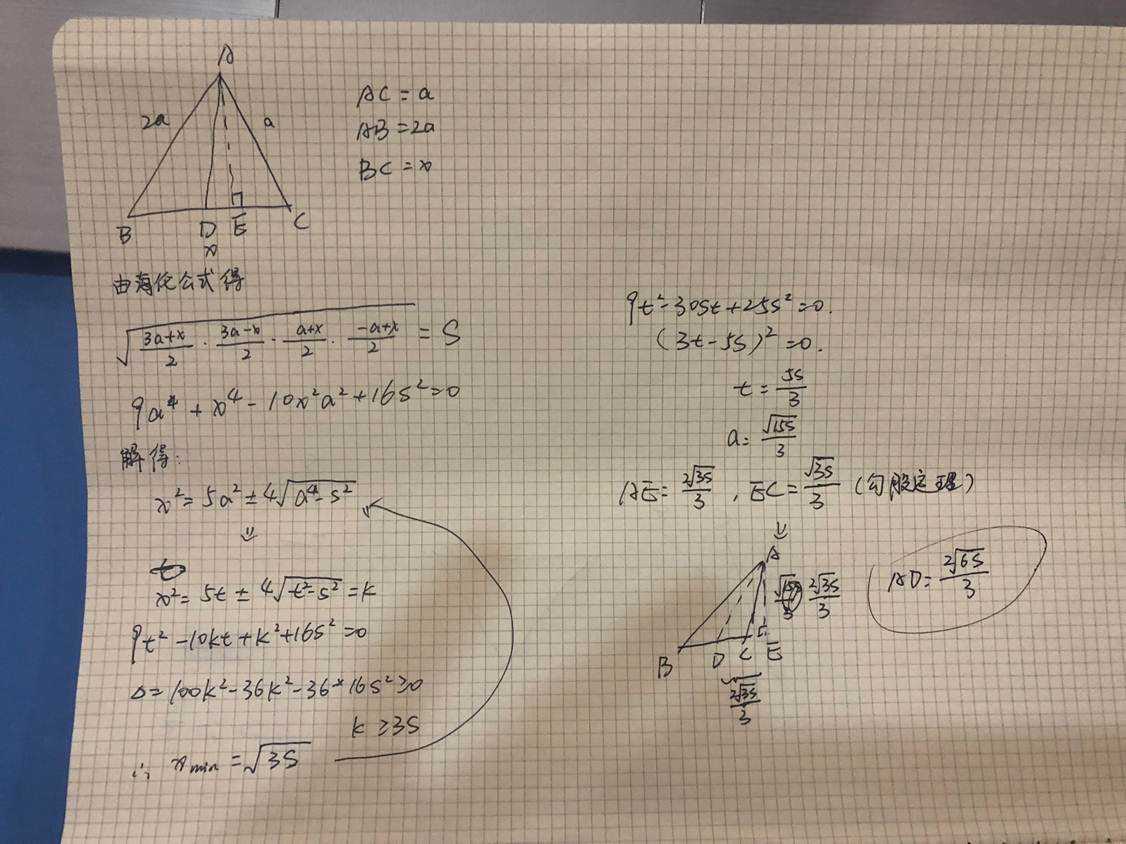 A
2a
a
B
D
E
C
x
AC = a
AB = 2a
BC = x
由海伦公式得
√(3a+x/2 · 3a-x/2 · a+x/2 · -a+x/2) = S
9a⁴ + x⁴ - 10x²a² + 16S² = 0
解得:
x² = 5a² ± 4√(a⁴ - S²)
x² = 5t ± 4√(t² - S²) = k
9t² - 10kt + k² + 16S² = 0
Δ = 100k² - 36k² - 36*16S² ≥ 0
k ≥ 3S
∴ xmin = √3S
9t² - 30St + 25S² = 0.
(3t - 5S)² = 0.
t = 5S/3
a = √15S/3
AE = 2√3S/3 , EC = √3S/3 (勾股定理)
A
2√3S/3
B
D
C
E
2√3S/3
AD = 2√6S/3